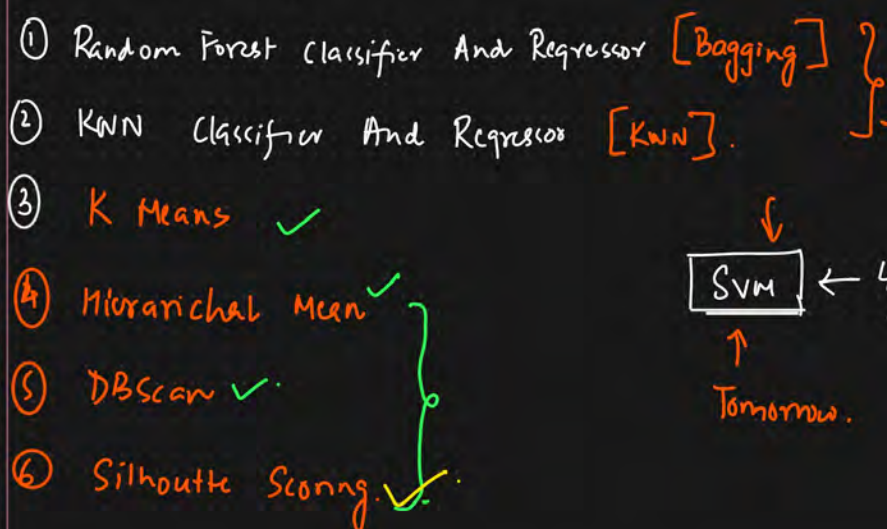 ① Random Forest Classifier And Regressor [Bagging]
② KNN Classifier And Regressor [KNN].
③ K Means ✓
④ Hierarichal Mean ✓
SVM ←
⑤ DBScan ✓.
Tomorrow.
⑥ Silhoutte Scoring. ✓.